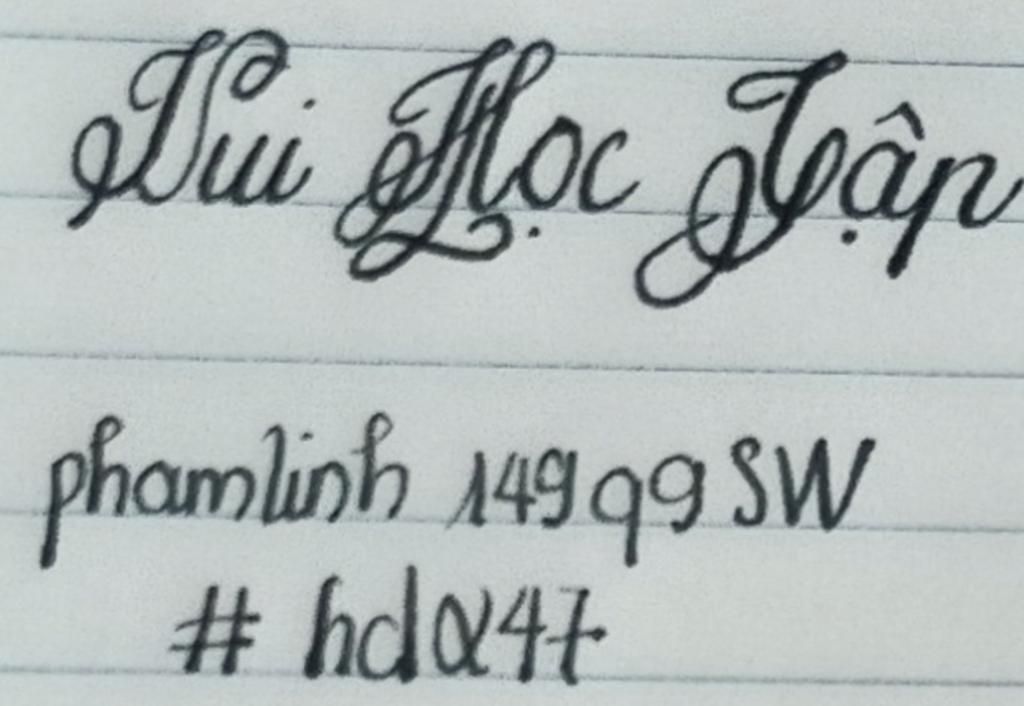 Vui Học Tập
phamlinh 149q9SW
# hdα47